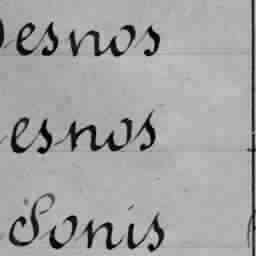 Desnos
esnos
Sonis